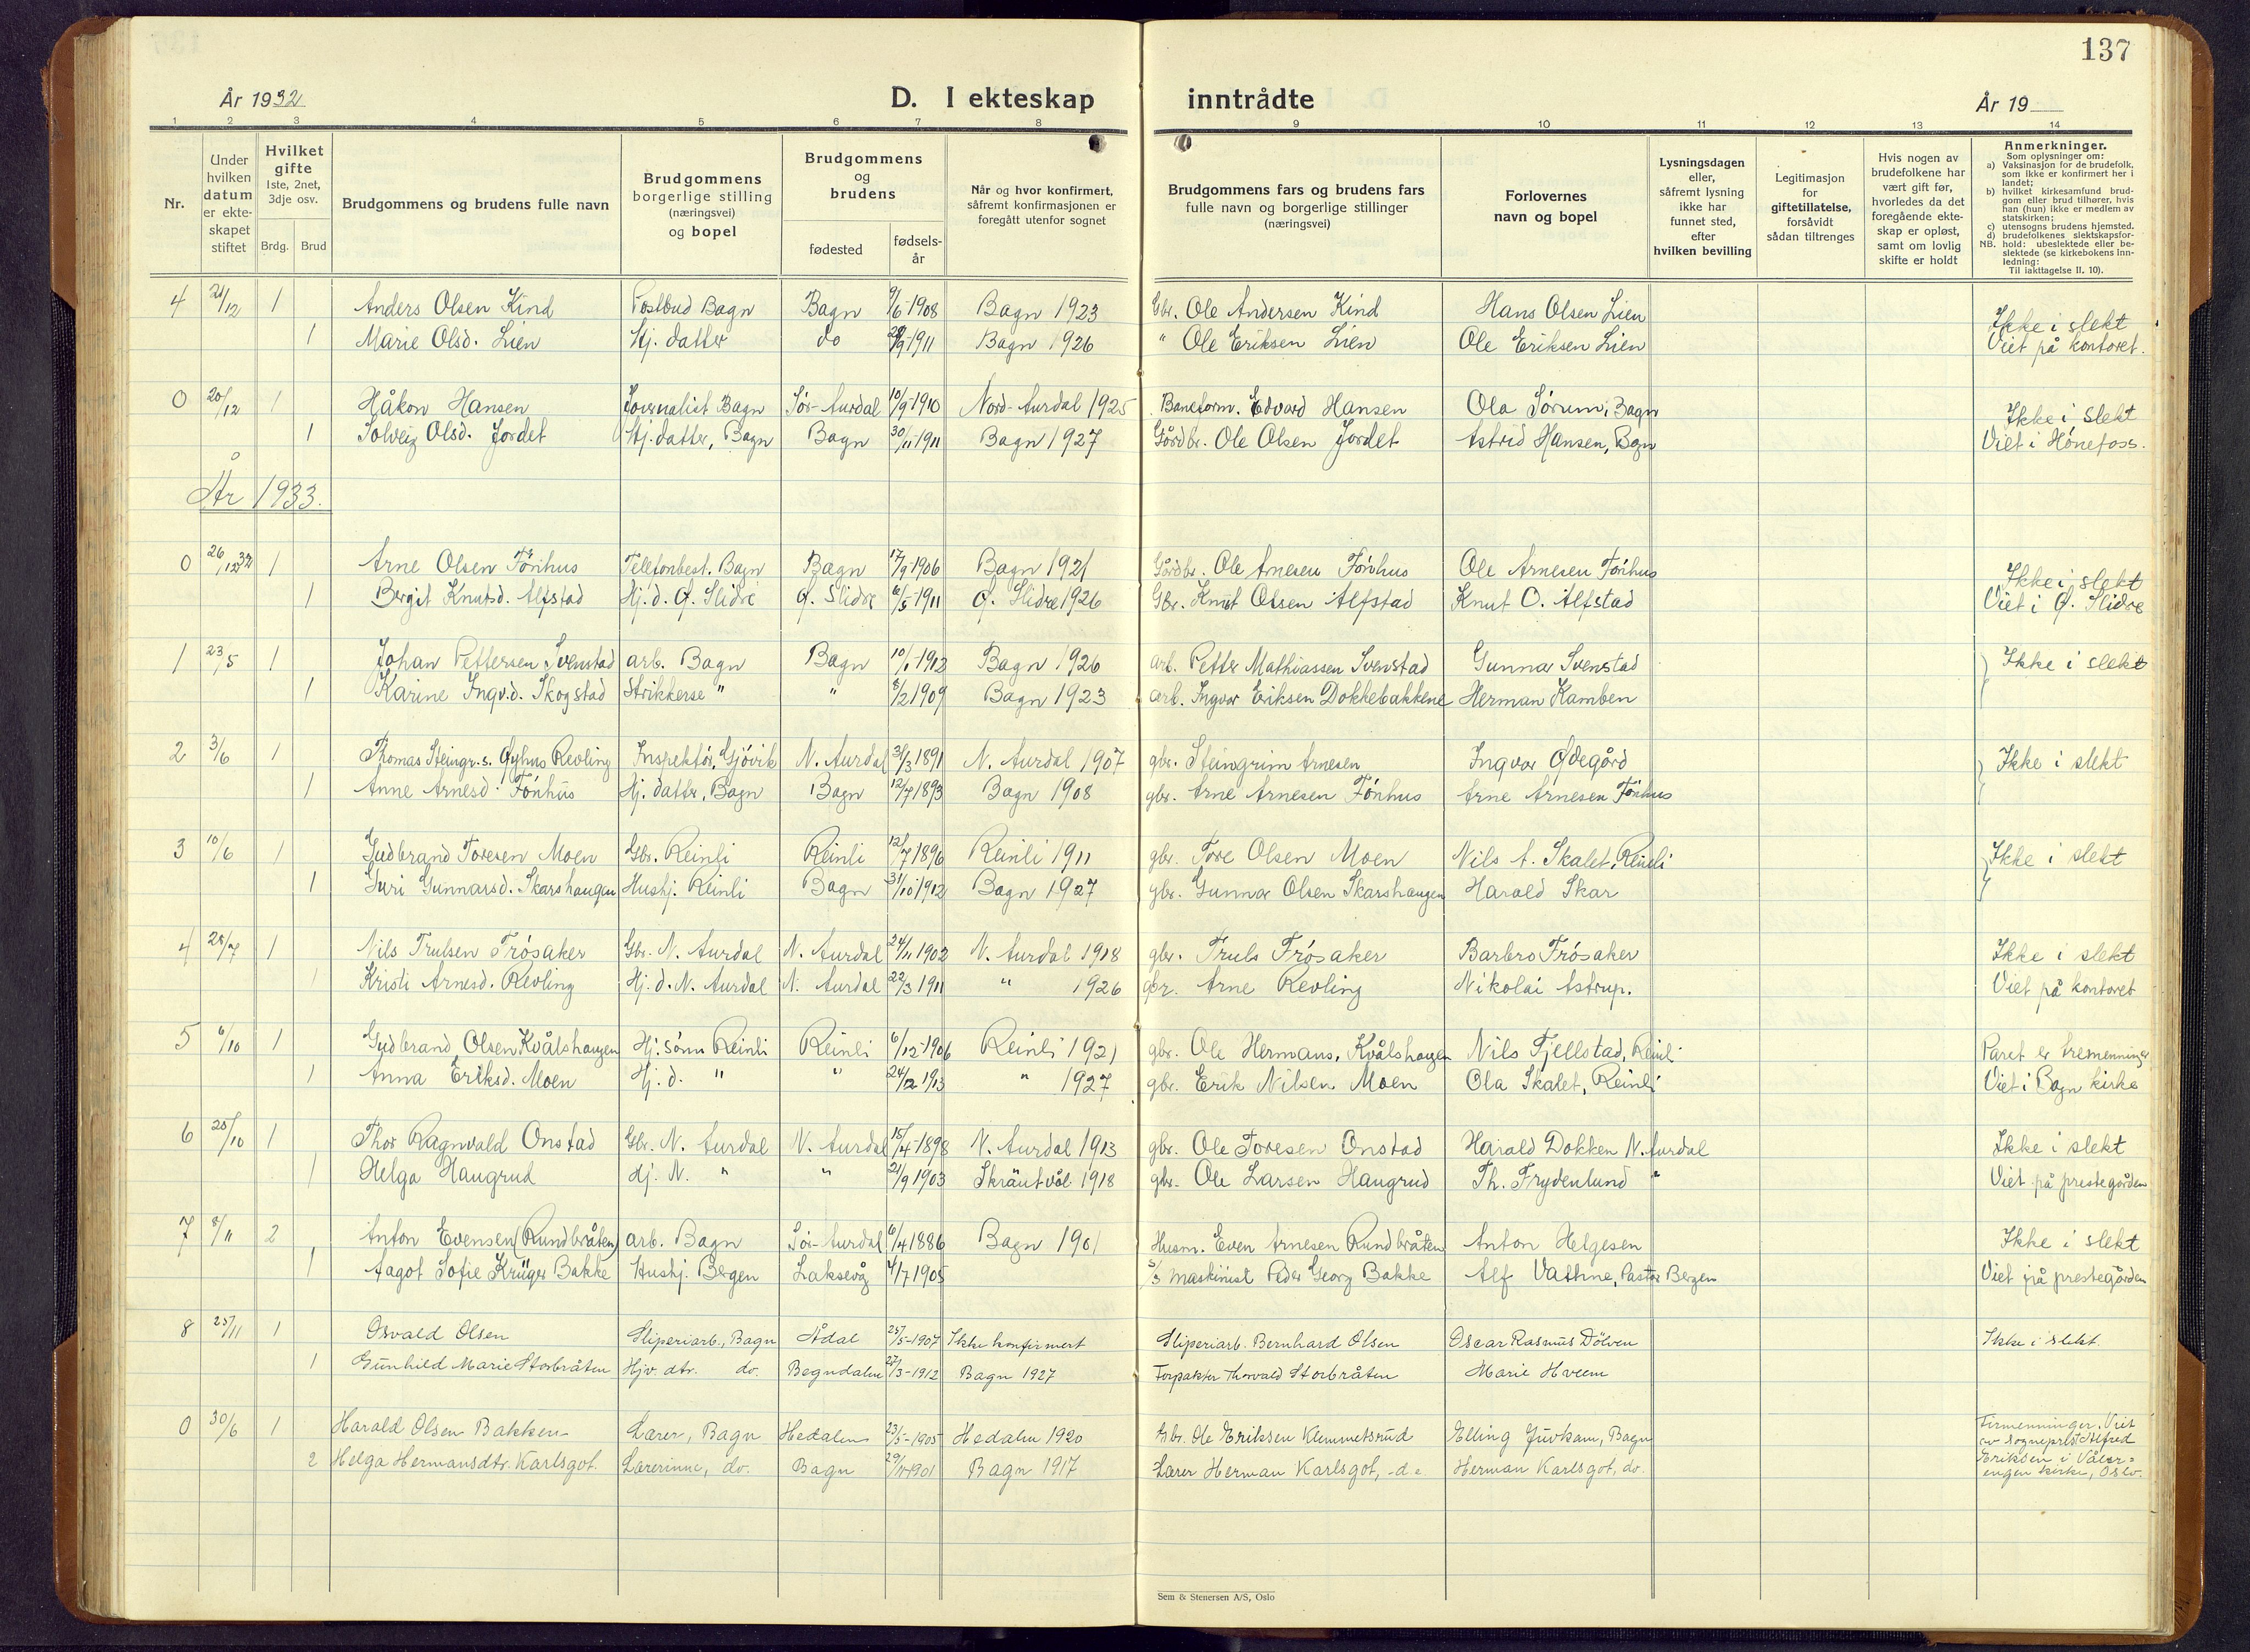 137
År 1932
D. I ekteskap inntrådte
År 19
1 2 3 4 5 6 7 8 9 10 11 12 13 14
Nr.
Under hvilken datum er ekteskapet stiftet
Hvilket gifte 1ste, 2net, 3dje osv.
Brdg. Brud
Brudgommens og brudens fulle navn
Brudgommens borgerlige stilling (næringsvei) og bopel
Brudgommens og brudens
fødested
fødsels-år
Når og hvor konfirmert, såfremt konfirmasjonen er foregått utenfor sognet
Brudgommens fars og brudens fars fulle navn og borgerlige stillinger (næringsvei)
Forlovernes navn og bopel
Lysningsdagen eller, såfremt lysning ikke har funnet sted, efter hvilken bevilling
Legitimasjon for giftetillatelse, forsåvidt sådan tiltrenges
Hvis nogen av brudefolkene har vært gift før, hvorledes da det foregående ekteskap er opløst, samt om lovlig skifte er holdt
Anmerkninger.
Som oplysninger om:
a) Vaksinasjon for de brudefolk, som ikke er konfirmert her i landet;
b) hvilket kirkesamfund brudgom eller brud tilhører, hvis han (hun) ikke er medlem av statskirken;
c) utensogns brudens hjemsted.
d) brudefolkenes slektskapsforhold: ubeslektede eller beslektede (se kirkebokens innledning:
NB. Til iakttagelse II. 10).
4 21/12 1 Anders Olsen Kind Postbud Bagn Bagn 9/6 1908 Bagn 1923 Gbr. Ole Andersen Kind Hans Olsen Lien Ikke i slekt
1 Marie Olsd. Lien Hj. datter do 1911 Bagn 1926 " Ole Eriksen Lien Ole Eriksen Lien Viet på kontoret.
0 20/12 1 Håkon Hansen Journalist Bagn Sør-Aurdal 10/9-1910 Nord-Aurdal 1925 Baneform. Edvard Hansen Ola Sørum, Bagn Ikke i slekt
1 Solveig Olsd. Jordet Hj. datter, Bagn Bagn 30/11-1911 Bagn 1927 Gårdbr. Ole Olsen Jordet Astrid Hansen, Bgn Viet i Hønefoss.
År 1933.
0 26/12 32 1 Arne Olsen Fønhus Telefonbest. Bagn Bagn 17/9 1906 Bagn 1921 Gårdbr. Ole Arnesen Fønhus Ole Arnesen Fønhus Ikke i slekt
1 Bergit Knutsd. Alfstad Hj. d. Ø. Slidre Ø. Slidre 6/5-1911 Ø. Slidre 1926 Gbr. Knut Olsen Alfstad Knut O. Alfstad Viet i Ø. Slidre
1 23/5 1 Johan Pettersen Svenstad arb. Bagn Bagn 10/1 1912 Bagn 1926 arb. Petter Mathiassen Svenstad Gunnar Svenstad Ikke i slekt
1 Karine Ingv.d. Skogstad Strikkerse " " 8/2 1909 Bagn 1923 arb. Ingvar Eriksen Dokkebakkene Herman Kamben
2 3/6 1 Thomas Steingr.s. Øyhus Revling Inspektør, Gjøvik N. Aurdal 31/3 1891 N. Aurdal 1907 gbr. Steingrim Arnesen Ingvar Ødegård Ikke i slekt
1 Anne Arnesd. Fønhus Hj. datter, Bagn Bagn 12/7 1893 Bagn 1908 gbr. Arne Arnesen Fønhus Arne Arnesen Fønhus
3 10/6 1 Gudbrand Toresen Moen Gbr. Reinli Reinli 12/7 1896 Reinli 1911 gbr. Tore Olsen Moen Nils A. Skalet, Reinli Ikke i slekt
1 Guri Gunnarsd. Skarshaugen Hushj. Reinli Bagn 31/10 1912 Bagn 1927 gbr. Gunnar Olsen Skarshaugen Harald Skar
4 28/7 1 Nils Trulsen Frøsaker Gbr. N. Aurdal N. Aurdal 24/11 1902 N. Aurdal 1918 gbr. Truls Frøsaker Barbro Frøsaker Ikke i slekt
1 Kristi Arnesd. Revling Hj. d. N. Aurdal N. Aurdal 22/3 1911 " 1926 gbr. Arne Revling Nikolai Astrup. Viet på kontoret
5 6/10 1 Gudbrand Olsen Kvålshaugen Hj. sønn Reinli Reinli 6/12-1906 Reinli 1921 gbr. Ole Hermans. Kvålshaugen Nils Fjellstad, Reinli Paret er tremenninger
1 Anna Eriksd. Moen Hj. d. " " 24/2 1913 " 1927 gbr. Erik Nilsen Moen Ola Skalet, Reinli Viet i Bagn kirke
6 28/10 1 Thor Ragnvald Onstad Gbr. N. Aurdal N. Aurdal 15/4 1898 N. Aurdal 1913 gbr. Ole Toresen Onstad Harald Dokken N. Aurdal Ikke i slekt
1 Helga Haugrud Hj. N. " " 21/9 1903 Skrautvål 1918 gbr. Ole Larsen Haugrud Th. Frydenlund " Viet på prestegården
7 8/11 2 Anton Evensen (Rundbråten) arb. Bagn Sør-Aurdal 6/4 1886 Bagn 1901 Husm. Even Arnesen Rundbråten Anton Helgesen Ikke i slekt
1 Aagot Sofie Krüger Bakke Hushj. Bergen Laksevåg 4/7 1905 maskinist Peder Georg Bakke Alf Vathne, Pastor Bergen Viet på prestegården
8 25/11 1 Osvald Olsen Sliperiarb., Bagn Ådal 25/5-1907 Ikke konfirmert Sliperiarb. Bernhard Olsen Oscar Rasmus Dölven Ikke i slekt.
1 Gunhild Marie Storbråten Hjv. dtr. do. Begndalen 27/3-1912 Bagn 1927 Forpakter Thorvald Storbråten Marie Hveem
0 30/6 1 Harald Olsen Bakken Lærer, Bagn Hedalen 23/5-1905 Hedalen 1920 Gbr. Ole Eriksen Klemmetsrud Elling Juvkam, Bagn Firmenninger. Viet
av sogneprest Alfred
2 Helga Hermansdtr. Karlsgot. Lærerinne, do. Bagn 29/11-1901 Bagn 1917 Lærer Herman Karlsgot, -d- Herman Karlsgot, do. Eriksen i Våler-
engen kirke, Oslo.
Sem & Stenersen A/S, Oslo